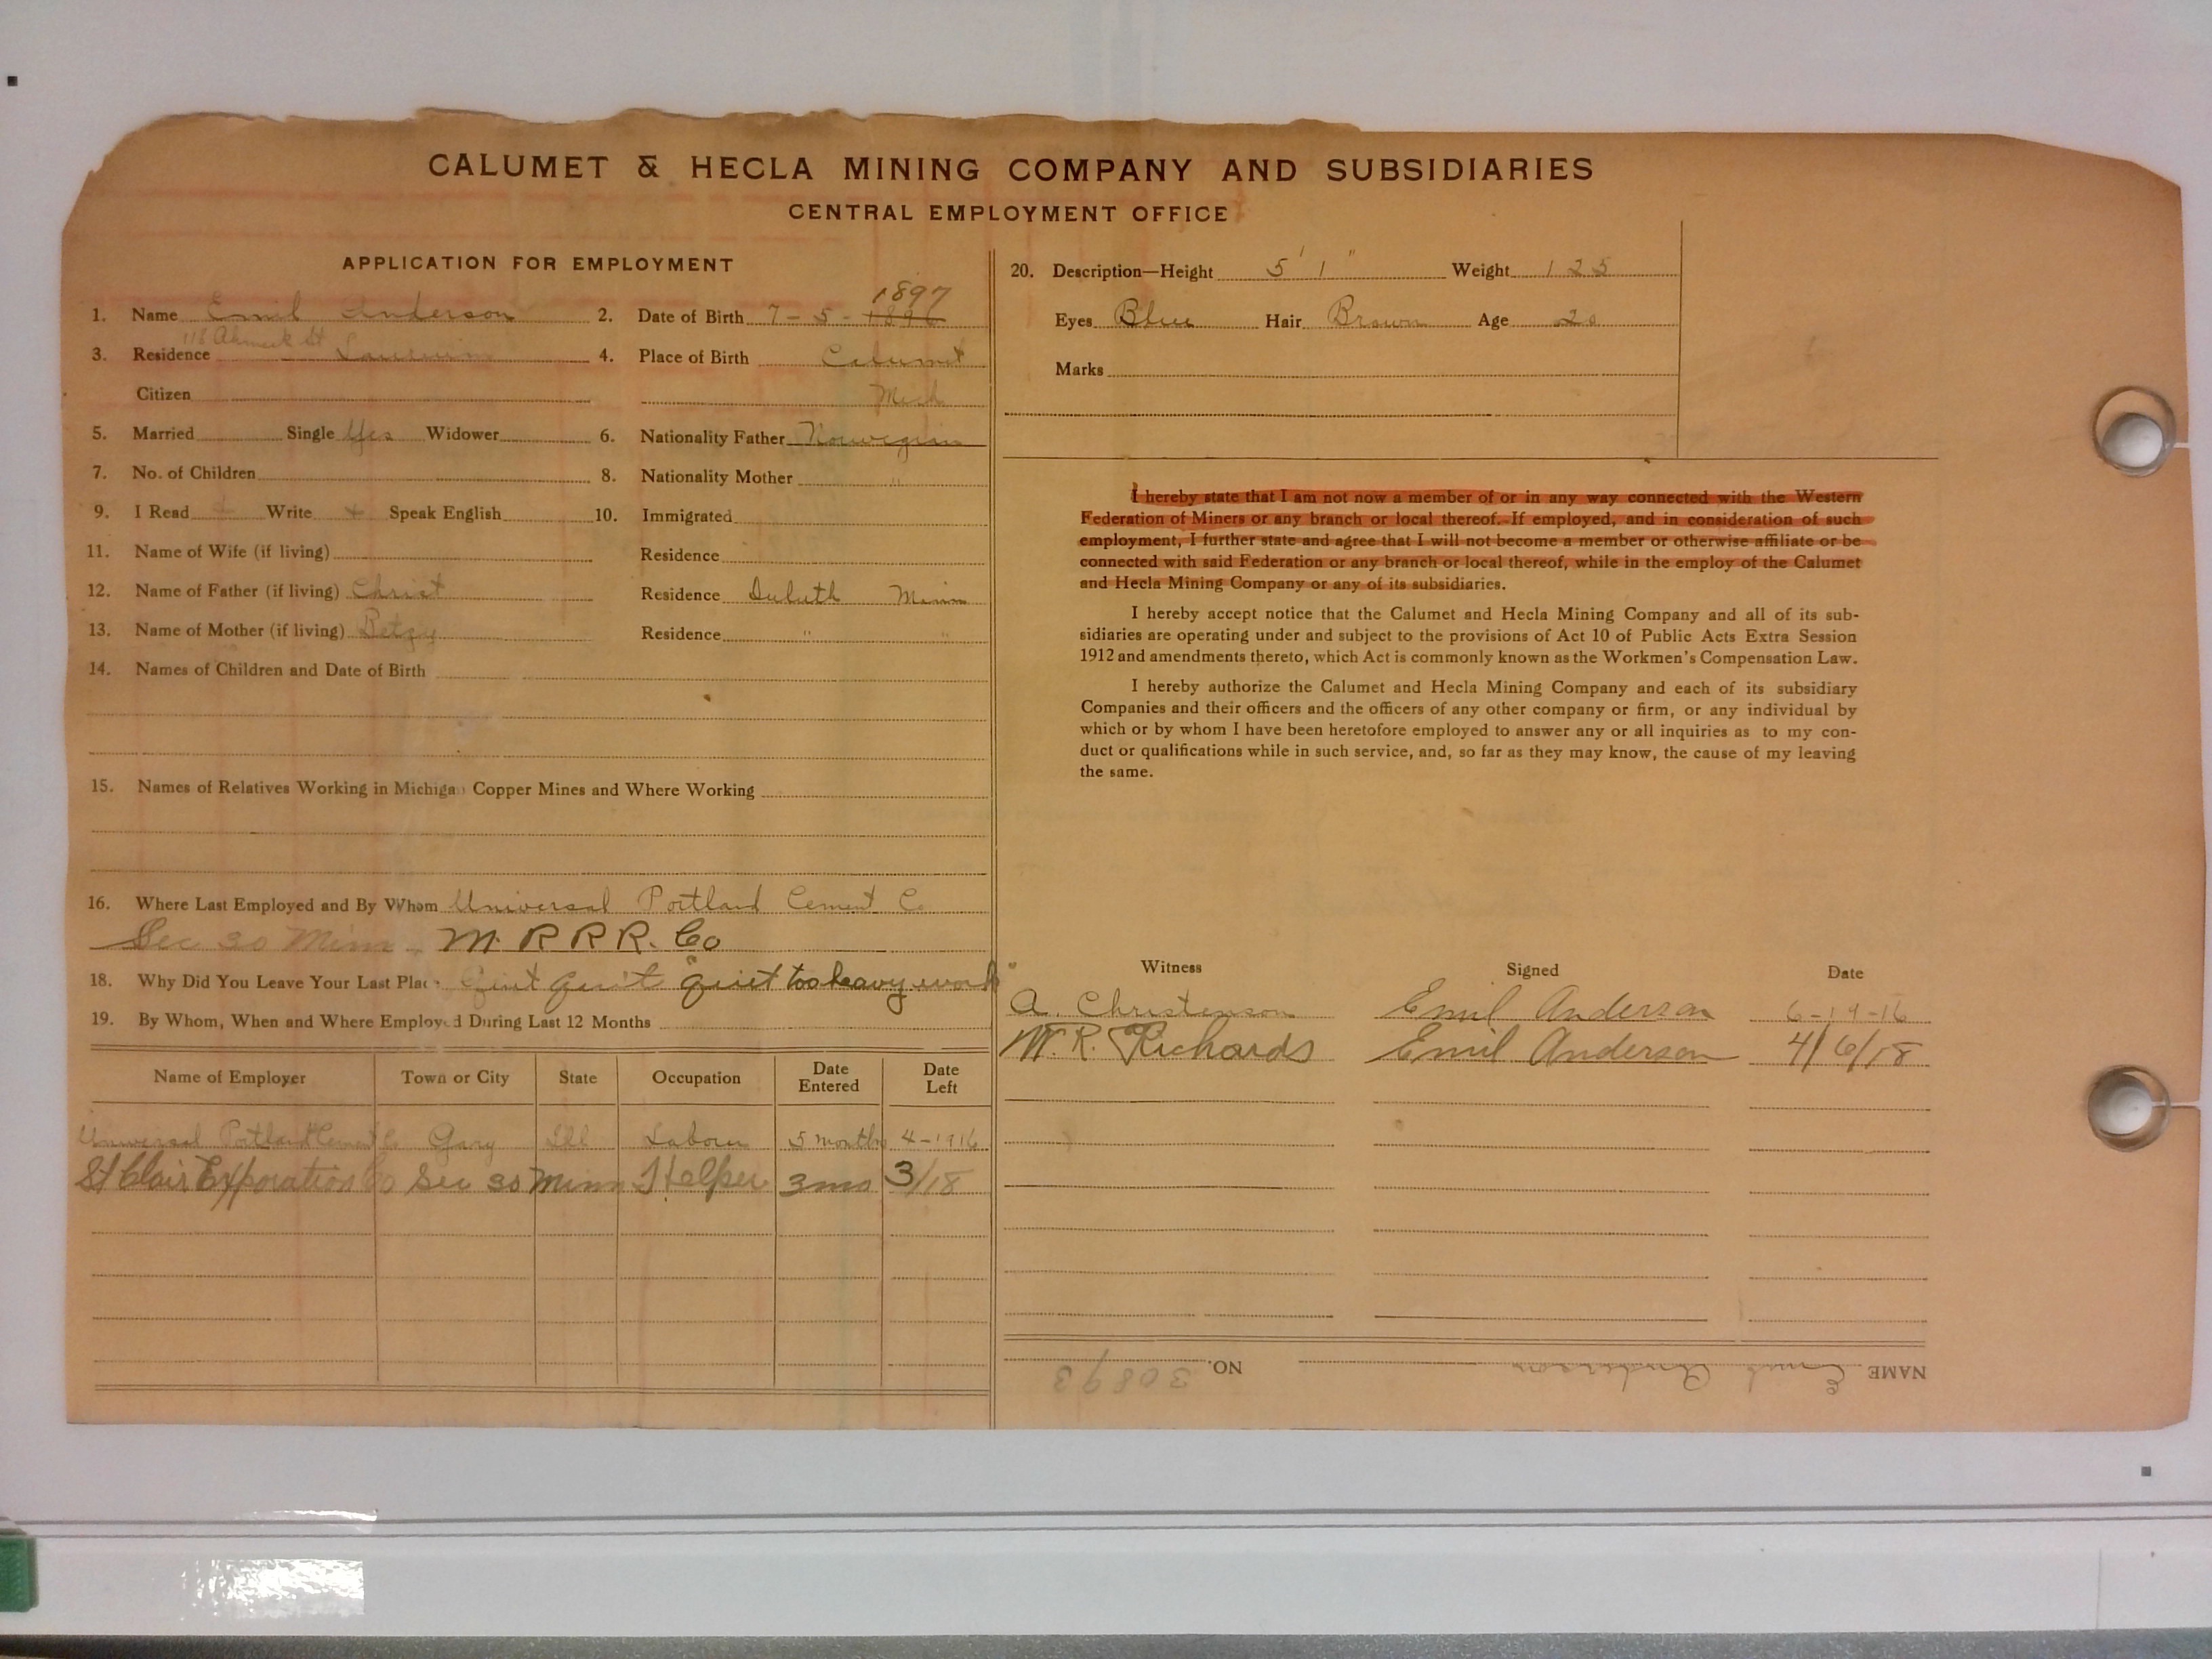 CALUMET & HECLA MINING COMPANY AND SUBSIDIARIES
CENTRAL EMPLOYMENT OFFICE
APPLICATION FOR EMPLOYMENT
1897
1. Name Emil Anderson 2. Date of Birth 7-5-1896
118 Ahmeek St
3. Residence Laurium 4. Place of Birth Calumet
Citizen Mich
5. Married Single Yes Widower 6. Nationality Father Norwegian
7. No. of Children 8. Nationality Mother "
9. I Read + Write + Speak English 10. Immigrated
11. Name of Wife (if living) Residence
12. Name of Father (if living) Christ Residence Duluth Minn
13. Name of Mother (if living) Betzy Residence " "
14. Names of Children and Date of Birth
15. Names of Relatives Working in Michigan Copper Mines and Where Working
16. Where Last Employed and By Whom Universal Portland Cement Co
Sec 30 Minn. M. R R R. Co
18. Why Did You Leave Your Last Place Quit quit "quiet too heavy work"
19. By Whom, When and Where Employed During Last 12 Months
Name of Employer Town or City State Occupation Date Entered Date Left
Universal Portland Cement Co Gary Labour 5 months 4-1916
St Clair Exporation Co Sec 30 Minn Helper 3 mos 3/18
20. Description—Height 5' 1" Weight 125
Eyes Blue Hair Brown Age 20
Marks
I hereby state that I am not now a member of or in any way connected with the Western
Federation of Miners or any branch or local thereof. If employed, and in consideration of such
employment, I further state and agree that I will not become a member or otherwise affiliate or be
connected with said Federation or any branch or local thereof, while in the employ of the Calumet
and Hecla Mining Company or any of its subsidiaries.
I hereby accept notice that the Calumet and Hecla Mining Company and all of its sub-
sidiaries are operating under and subject to the provisions of Act 10 of Public Acts Extra Session
1912 and amendments thereto, which Act is commonly known as the Workmen's Compensation Law.
I hereby authorize the Calumet and Hecla Mining Company and each of its subsidiary
Companies and their officers and the officers of any other company or firm, or any individual by
which or by whom I have been heretofore employed to answer any or all inquiries as to my con-
duct or qualifications while in such service, and, so far as they may know, the cause of my leaving
the same.
Witness Signed Date
A. Christenson Emil Anderson 6-19-16
W. R. Richards Emil Anderson 4/6/18
NAME Emil Anderson NO. 30893